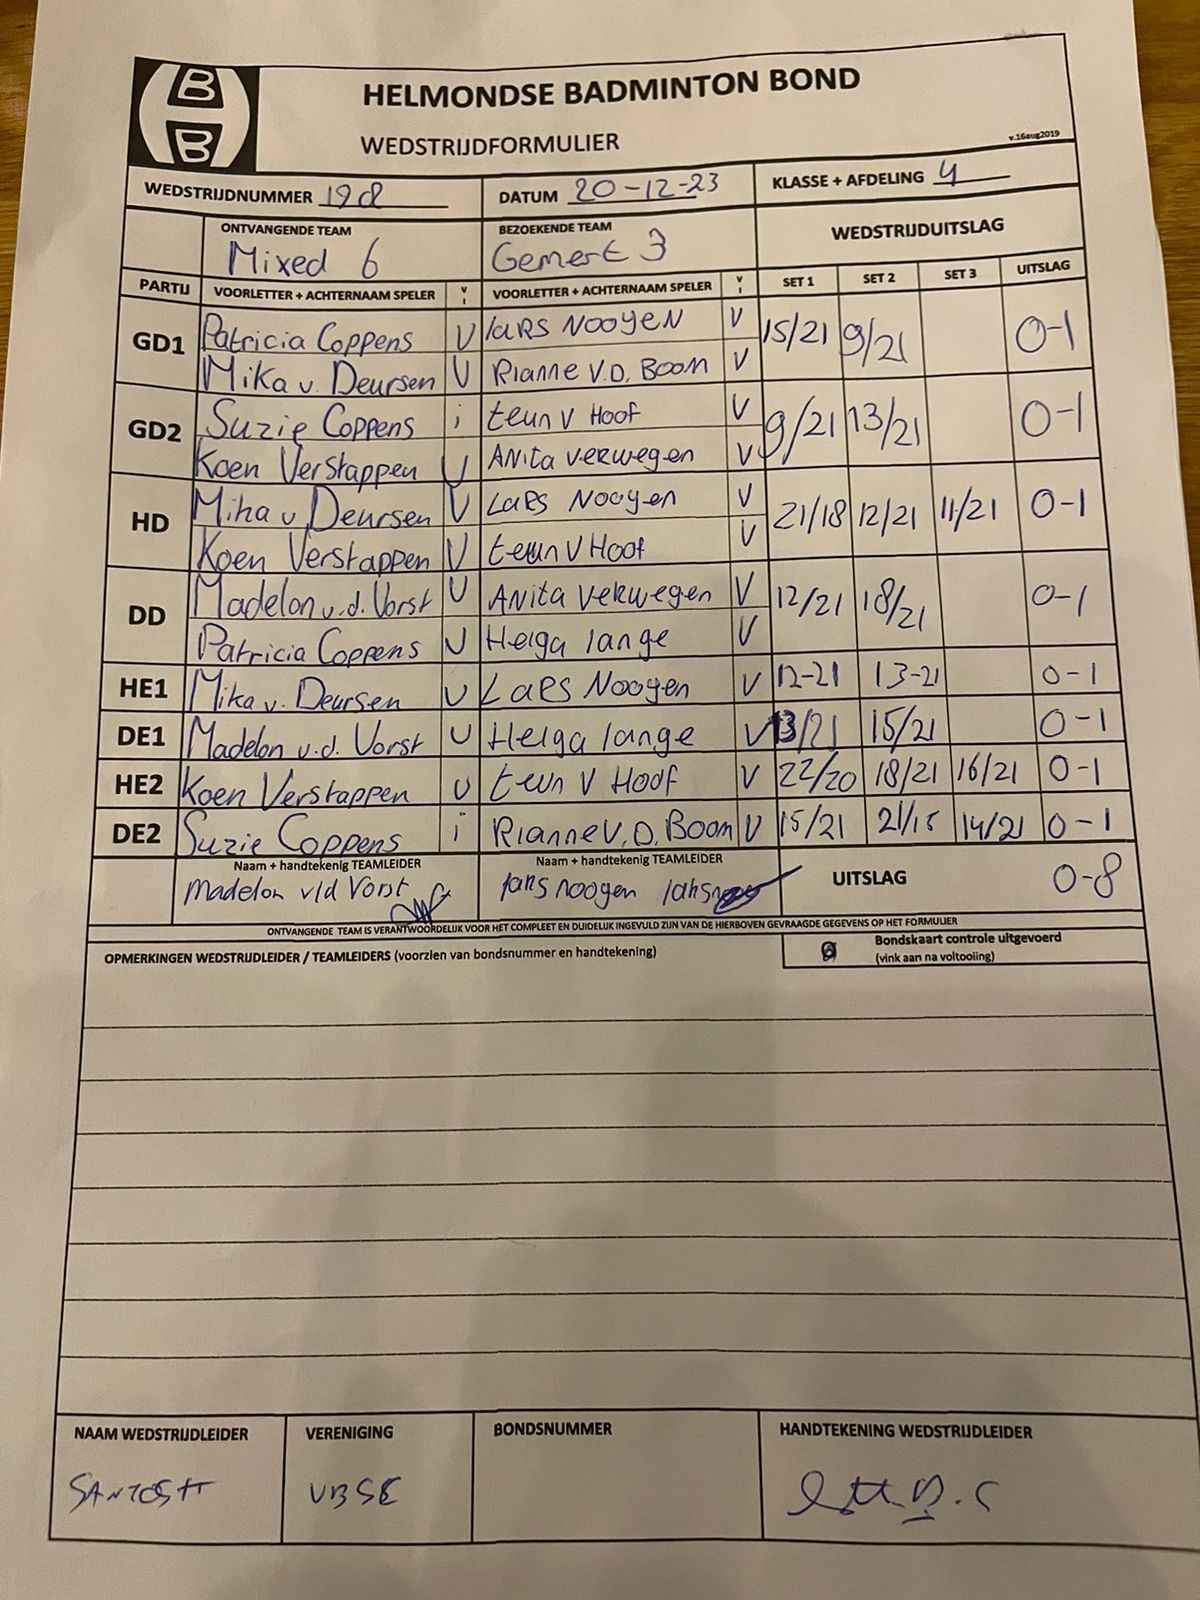 B
B
HELMONDSE BADMINTON BOND
WEDSTRIJDFORMULIER
v.16aug2019
WEDSTRIJDNUMMER 19d DATUM 20-12-23 KLASSE + AFDELING 4
ONTVANGENDE TEAM BEZOEKENDE TEAM WEDSTRIJDUITSLAG
Mixed 6 Gemert 3
PARTIJ VOORLETTER + ACHTERNAAM SPELER V I VOORLETTER + ACHTERNAAM SPELER V I SET 1 SET 2 SET 3 UITSLAG
GD1 Patricia Coppens V LARS NOOYEN V 15/21 9/21 0-1
Mika v. Deursen V Rianne V.D. Boom V
GD2 Suzie Coppens i teun V Hoof V 9/21 13/21 0-1
Koen Verstappen V ANita verwegen V
HD Mika v Deursen V LARS Nooyen V 21/18 12/21 11/21 0-1
Koen Verstappen V teun V Hoof V
DD Madelon v.d. Vorst V ANita verwegen V 12/21 18/21 0-1
Patricia Coppens V Helga lange V
HE1 Mika v. Deursen V LARS Nooyen V 12-21 13-21 0-1
DE1 Madelon v.d. Vorst V Helga lange V 13/21 15/21 0-1
HE2 Koen Verstappen V teun V Hoof V 22/20 18/21 16/21 0-1
DE2 Suzie Coppens i Rianne V.D. Boom V 15/21 21/15 14/21 0-1
Naam + handtekenig TEAMLEIDER Naam + handtekenig TEAMLEIDER UITSLAG 0-8
Madelon v/d Vorst lars nooyen
ONTVANGENDE TEAM IS VERANTWOORDELIJK VOOR HET COMPLEET EN DUIDELIJK INGEVULD ZIJN VAN DE HIERBOVEN GEVRAAGDE GEGEVENS OP HET FORMULIER
OPMERKINGEN WEDSTRIJDLEIDER / TEAMLEIDERS (voorzien van bondsnummer en handtekening) Bondskaart controle uitgevoerd
(vink aan na voltooiing)
NAAM WEDSTRIJDLEIDER VERENIGING BONDSNUMMER HANDTEKENING WEDSTRIJDLEIDER
SANTOSH VBSE